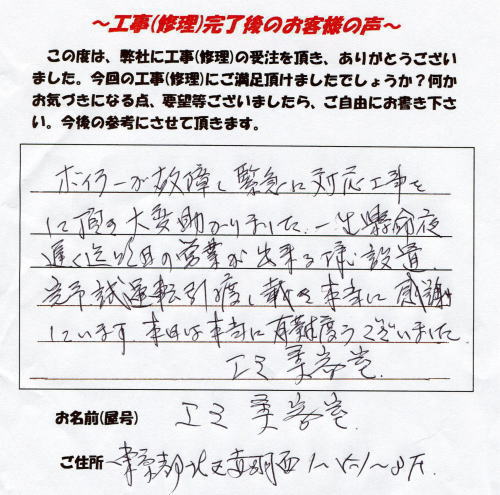 ~工事(修理)完了後のお客様の声~
この度は、弊社に工事(修理)の受注を頂き、ありがとうござい
ました。今回の工事(修理)にご満足頂けましたでしょうか?何か
お気づきになる点、要望等ございましたら、ご自由にお書き下さ
い。今後の参考にさせて頂きます。
ボイラーが故障し緊急に対応工事を
に頂き大変助かりました。一生懸命夜
遅く迄 の営業が出来る様に設置
試運転引き渡し戴き本当に感謝
しています 本日は本当に有難度うございました
エミ美容室
お名前(屋号) エミ美容室
ご住所 東京都北区